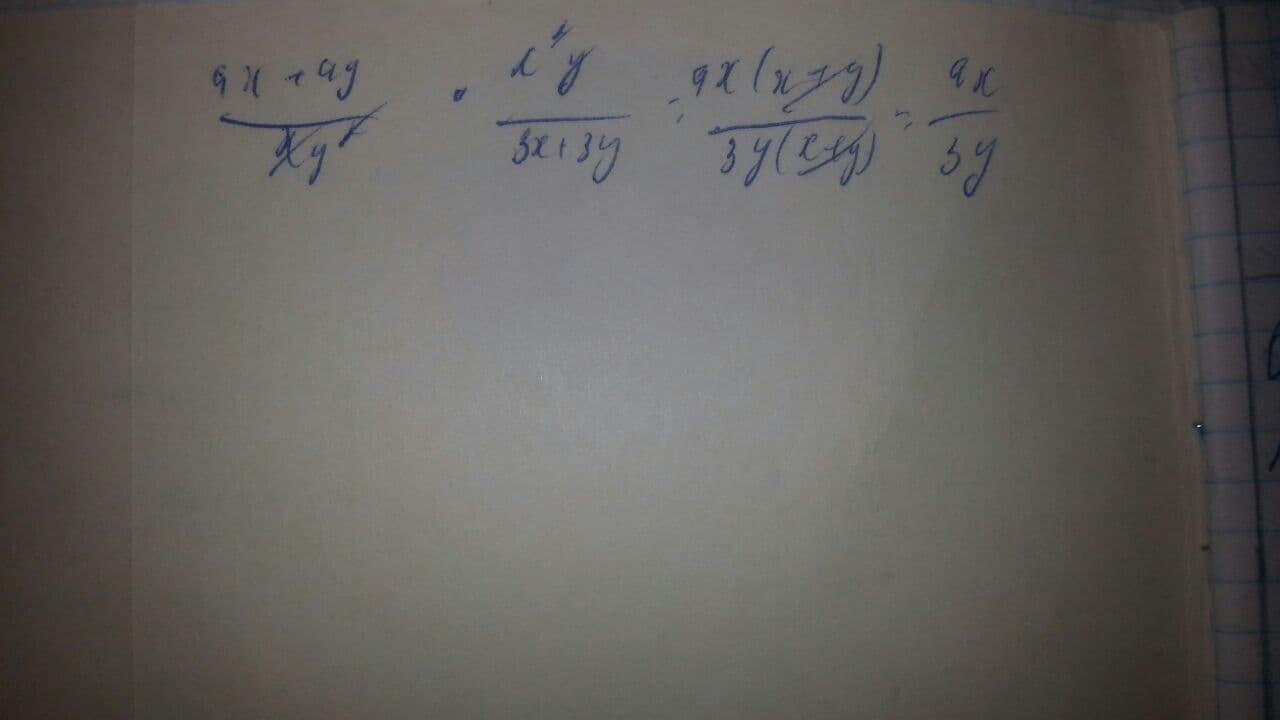 (ax + ay)/(xy²) · (x²y)/(3x+3y) = (ax(x+y))/(3y(x+y)) = (ax)/(3y)